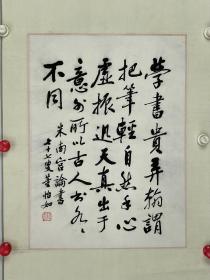 學書貴弄翰謂
把筆輕自然手心
虛振迅天真出于
意外所以古人書各々
不同
米南宮論書
七十七叟董怡如